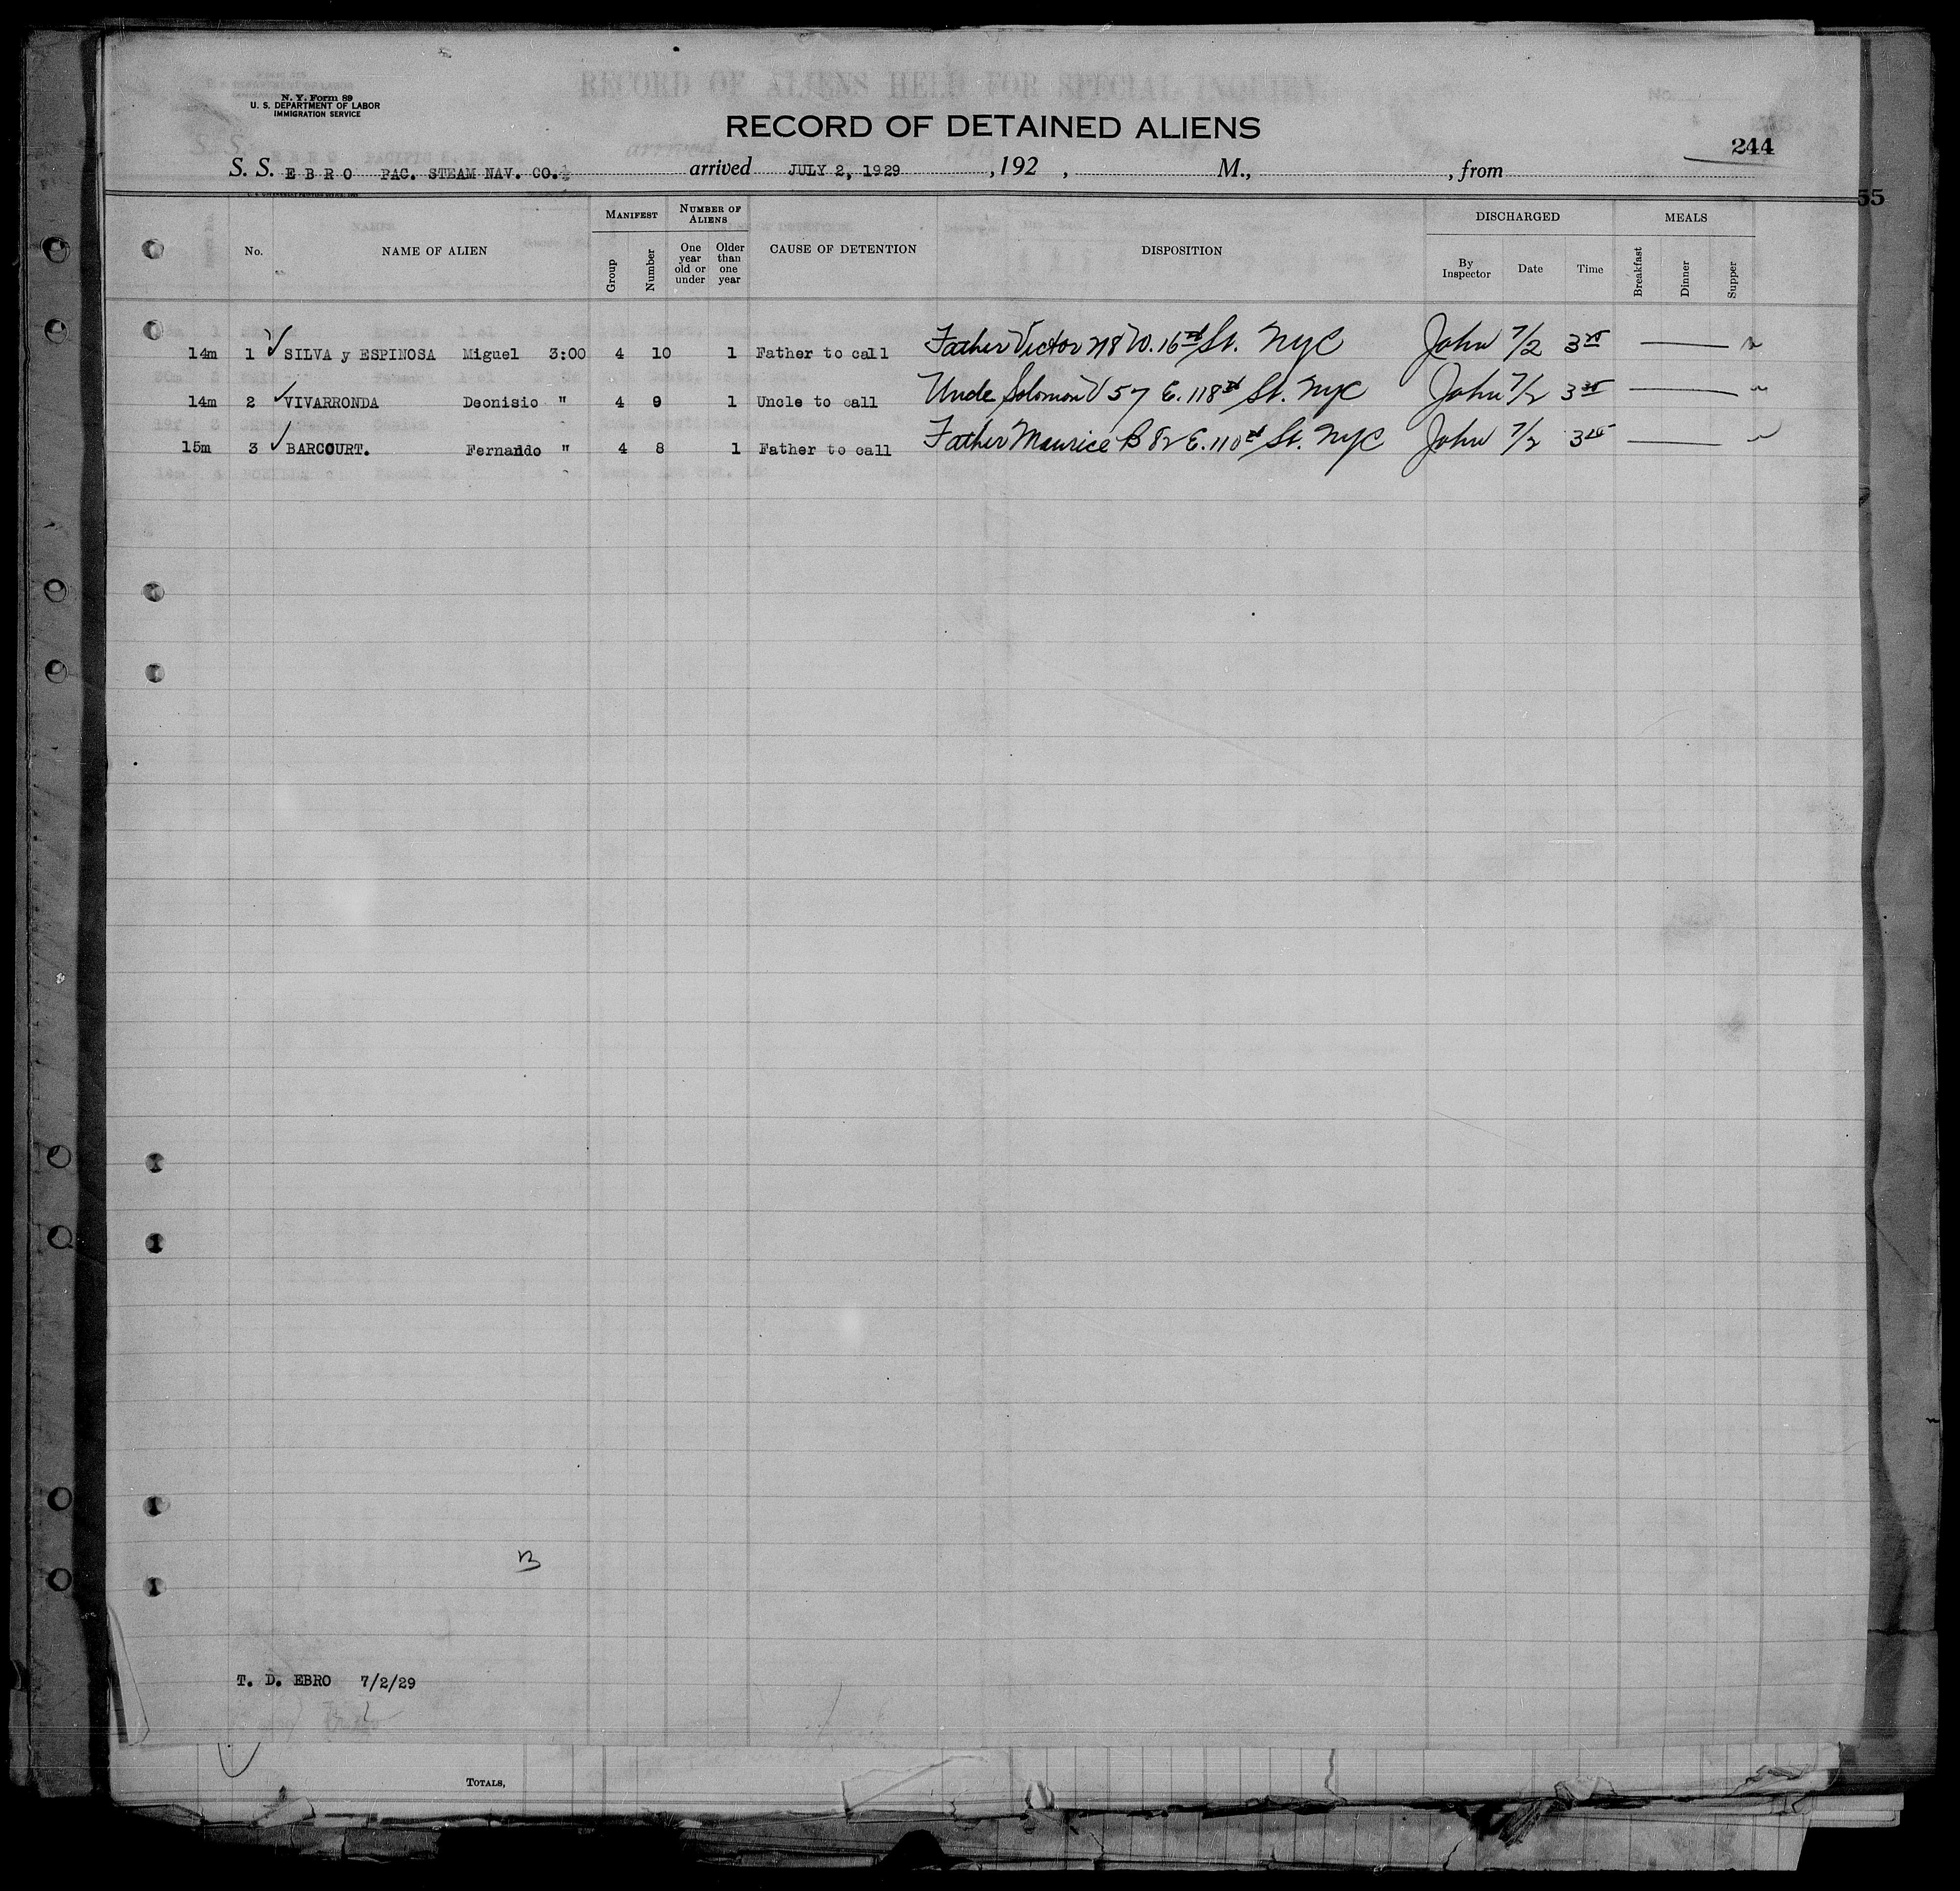 N. Y. Form 89
U. S. DEPARTMENT OF LABOR
IMMIGRATION SERVICE
RECORD OF ALIENS HELD FOR SPECIAL INQUIRY
RECORD OF DETAINED ALIENS
244
S. S. EBRO PAC. STEAM NAV. CO. arrived JULY 2, 1929 , 192 , M., , from
55
No. NAME OF ALIEN MANIFEST Group Number NUMBER OF ALIENS One year old or under Older than one year CAUSE OF DETENTION DISPOSITION DISCHARGED By Inspector Date Time MEALS Breakfast Dinner Supper
14m 1 SILVA y ESPINOSA Miguel 3:00 4 10 1 Father to call Father Victor W. 16 St. NYC John 7/2 3
14m 2 VIVARRONDA Deonisio " 4 9 1 Uncle to call Uncle Solomon V 57 E. 118 St. NYC John 7/2 3
15m 3 BARCOURT. Fernando " 4 8 1 Father to call Father Maurice B 82 E. 110 St. NYC John 7/2 3
T. D. EBRO 7/2/29
TOTALS,